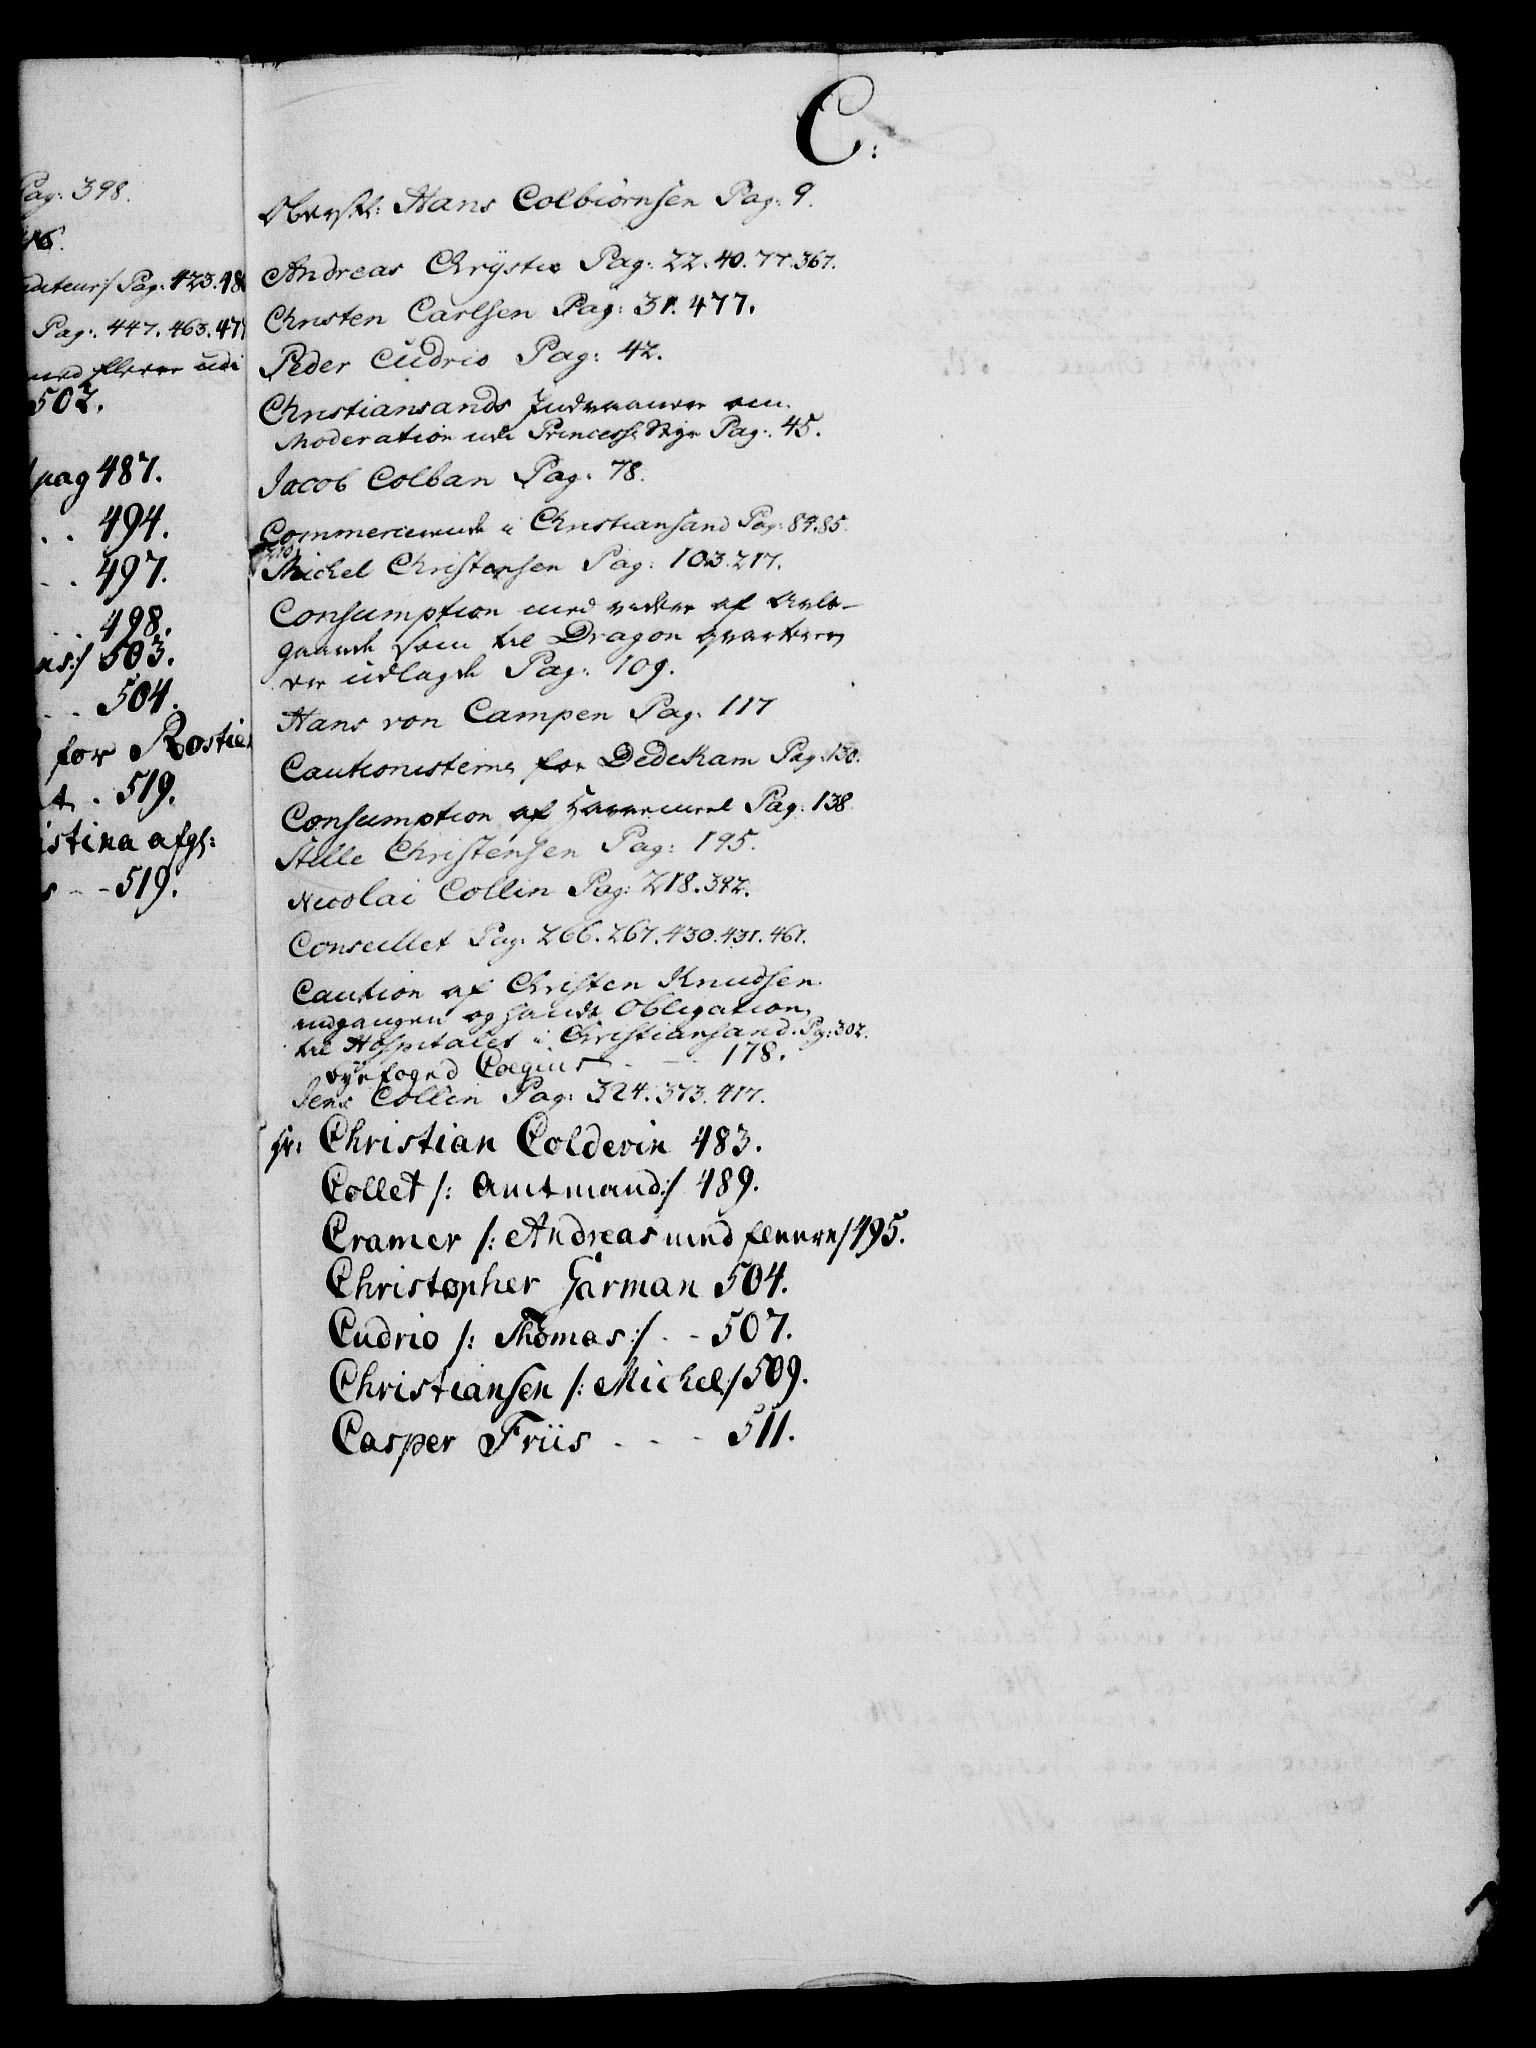 Pag: 398.
Pag: 423.48
Pag: 447. 463. 47
med fleere udi
502.
pag 487.
. . 494.
- . 497.
. . 498.
ns:/ 503.
. . 504.
for Rostie
. 519.
istina afg:
s - - 519.
C:
Hans Colbiörnsen Pag: 9.
Andreas Chrÿstie Pag: 22. 40. 77. 367.
Christen Carlsen Pag: 31. 477.
Peder Cudrio Pag: 42.
Christiansands Indvaanere om
Moderation udi Princesse Styr Pag: 45.
Jacob Colban Pag: 78.
i Christiansand Pag: 84.85.
Michel Christensen Pag: 103. 217.
Consumption med videre af Avls-
gaarde som til Dragon qvarterer
er udlagde Pag: 109.
Hans von Campen Pag: 117
Cautionisterne for Dedekam Pag: 130.
Consumption af Havremeel Pag: 138.
Stelle Christensen Pag: 195.
Nicolai Collin Pag: 218. 392.
Conseillet Pag: 266. 267. 430. 431. 461.
Caution af Christen Knudsen
indgangen og hands Obligation
til Hospitalet i Christiansand. Pag: 302.
Byefoged Coegius - - - 178.
Jens Collin Pag: 324. 373. 417.
Hr: Christian Coldevin 483.
Collet /: Amtmand:/ 489.
Cramer /: Andreas med fleere/ 495.
Christopher Garman 504.
Cudrio /: Thomas:/ . - 507.
Christiansen /: Michel:/ 509.
Casper Friis . - - 511.